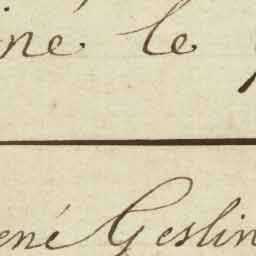 iné le
ené Geslin